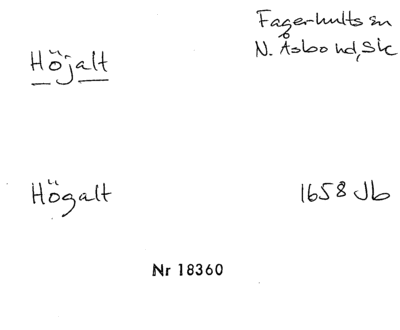 Höjalt
Fagerhults sn
N. Åsbo hd, Sk
Högalt
1658 Jb
Nr 18360